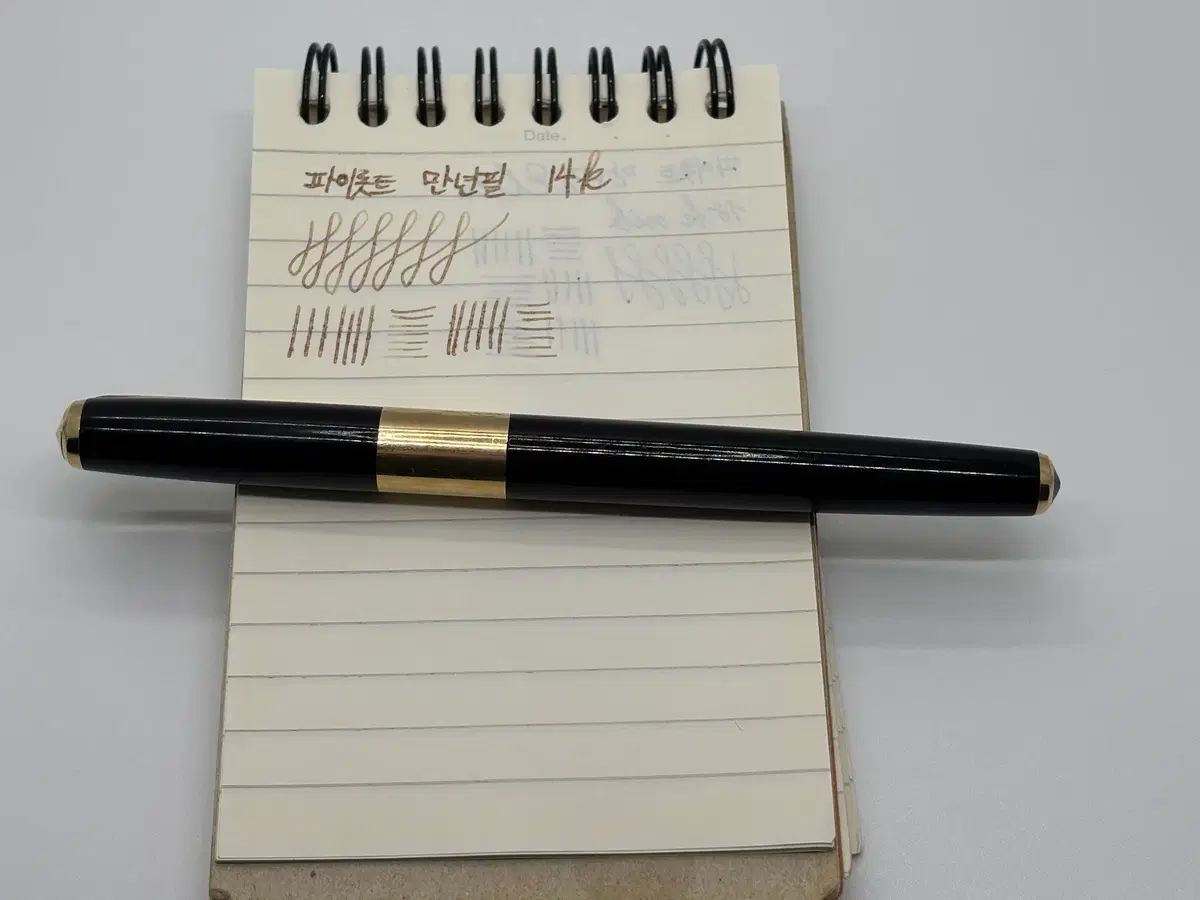 Date.
파이롯트 만년필 14k